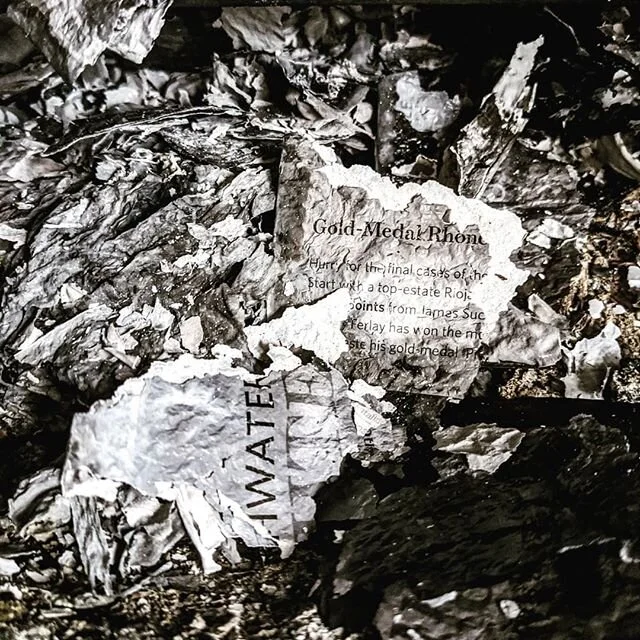 Gold-Medal Rhone
Hurry for the final cases of the
Start with a top-estate Rioj
points from James Suc
Ferlay has won the m
te his gold-medal
IWATER